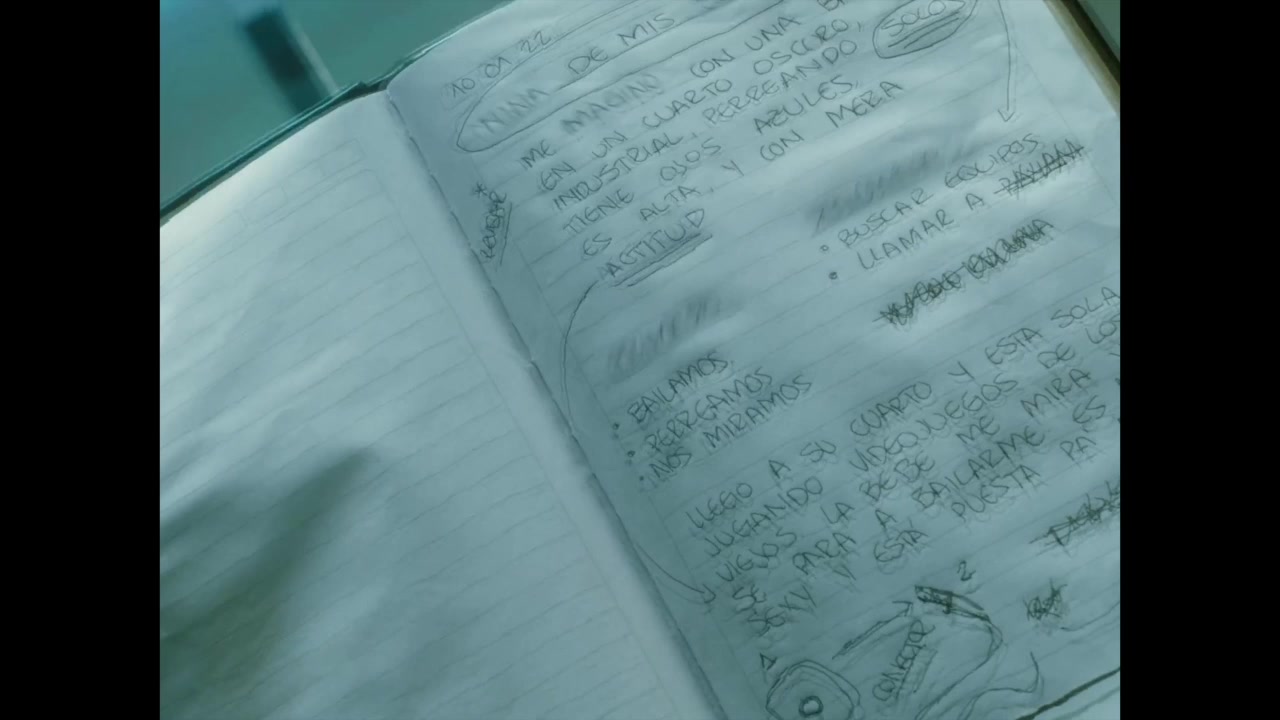 10 01 22
NINA DE MIS
ME IMAGINO CON UNA
EN UN CUARTO OSCURO,
INDUSTRIAL, PERREANDO
TIENE OJOS AZULES,
ES ALTA, Y CON MERA
ACTITUD
SOLOS
• BUSCAR EQUIPOS
• LLAMAR A
• BAILAMOS
• PERREAMOS
• NOS MIRAMOS
LLEGO A SU CUARTO Y ESTA SOLA
JUGANDO VIDEOJUEGOS DE LOS
VIEJOS LA BEBE ME MIRA Y
SE PARA A BAILARME ES
SEXY Y ESTA PUESTA PA
1
CONECTOR
2